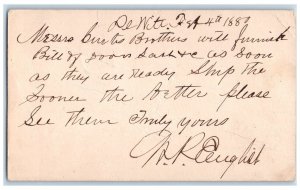 DeWitt, 4th 1883
Messrs Curtis Brothers will furnish
Bill of Doors Sash &c as soon
as they are ready Ship the
Sooner the better please
See them Truly yours
W. R. English